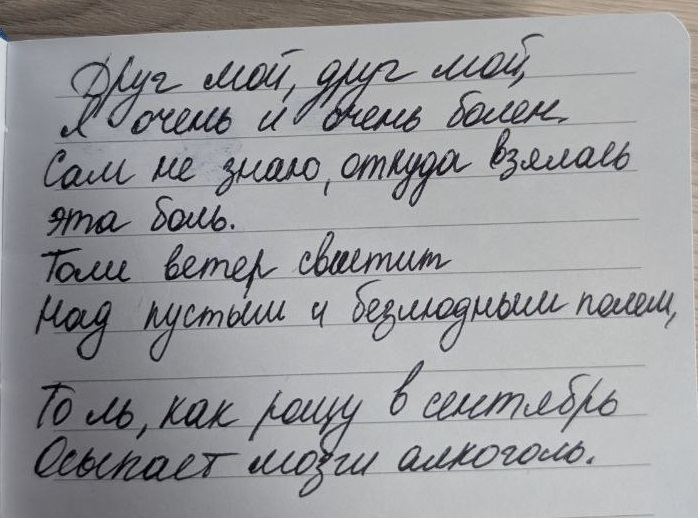 Друг мой, друг мой,
Я очень и очень болен.
Сам не знаю, откуда взялась
эта боль.
Толи ветер свистит
Над пустым и безлюдным полем,
То ль, как рощу в сентябрь
Осыпает мозги алкоголь.